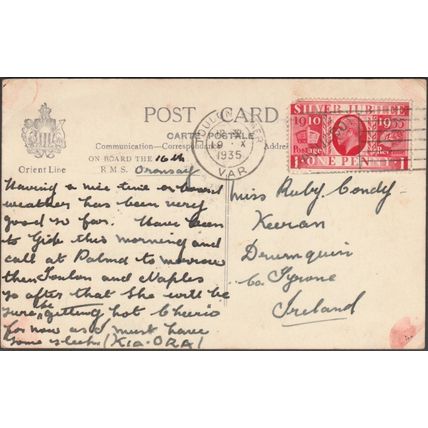 POST CARD
CARTE POSTALE
Communication—Correspondance
Address
Orient Line
ON BOARD THE 16th
R.M.S. Oronsay
Having a nice time on board
weather has been very
good so far. Have been
to Gib this morning and
call at Palma to-morrow
then Toulon and Naples
so after that she will be
sure be getting hot Cheerio
for now as I must have
some sleep (KIA-ORA)
Miss Ruby Condy
Keeran
Derrnquin
Co. Tyrone
Ireland
TOULON
9 X
1935
VAR
SILVER JUBILEE
1910 1935
Postage
1 ONE PENNY 1